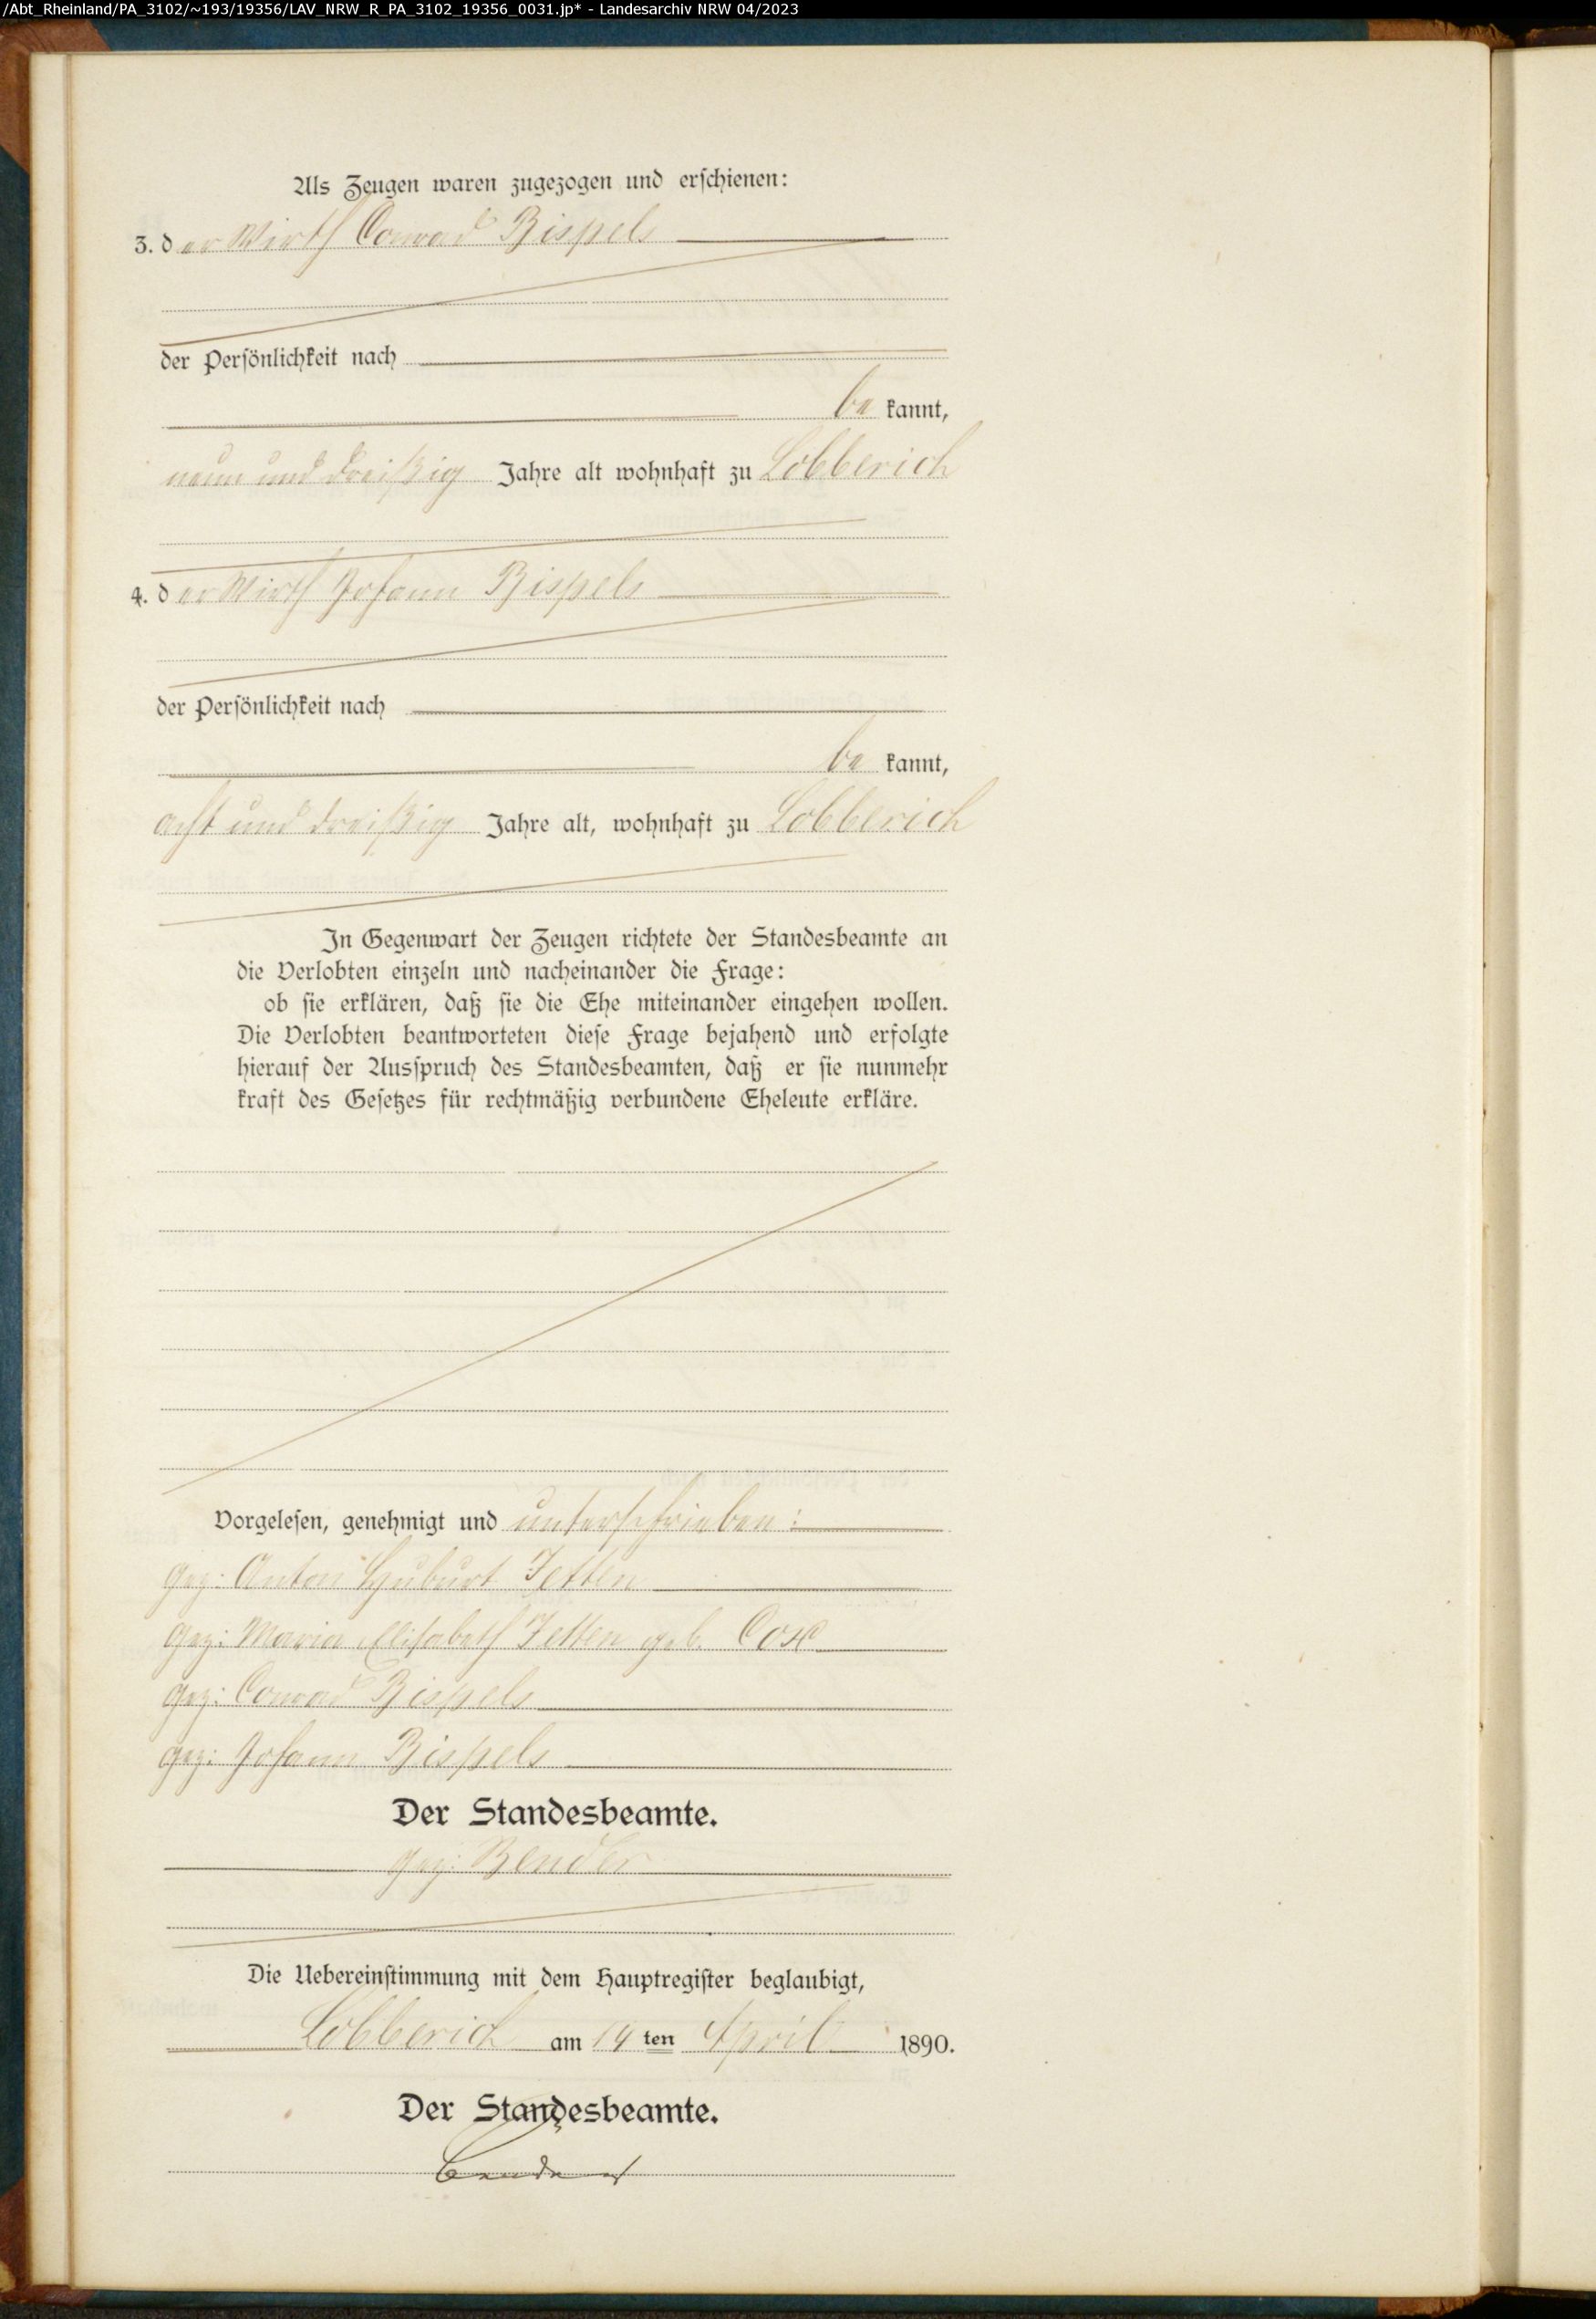 /Abt_Rheinland/PA_3102/~193/19356/LAV_NRW_R_PA_3102_19356_0031.jp* - Landesarchiv NRW 04/2023
Als Zeugen waren zugezogen und erschienen:
3. der Wirth Conrad Bispels
der Persönlichkeit nach
be kannt,
neun und dreißig Jahre alt wohnhaft zu Lobberich
4. der Wirth Johann Bispels
der Persönlichkeit nach
be kannt,
acht und dreißig Jahre alt, wohnhaft zu Lobberich
In Gegenwart der Zeugen richtete der Standesbeamte an
die Verlobten einzeln und nacheinander die Frage:
ob sie erklären, daß sie die Ehe miteinander eingehen wollen.
Die Verlobten beantworteten diese Frage bejahend und erfolgte
hierauf der Ausspruch des Standesbeamten, daß er sie nunmehr
kraft des Gesetzes für rechtmäßig verbundene Eheleute erkläre.
Vorgelesen, genehmigt und unterschrieben:
gez: Anton Huburt Jetten
gez: Maria Elisabeth Jetten geb. Cox
gez: Conrad Bispels
gez: Johann Bispels
Der Standesbeamte.
gez: Bender
Die Uebereinstimmung mit dem Hauptregister beglaubigt,
Lobberich am 19 ten April 1890.
Der Standesbeamte.
Bender